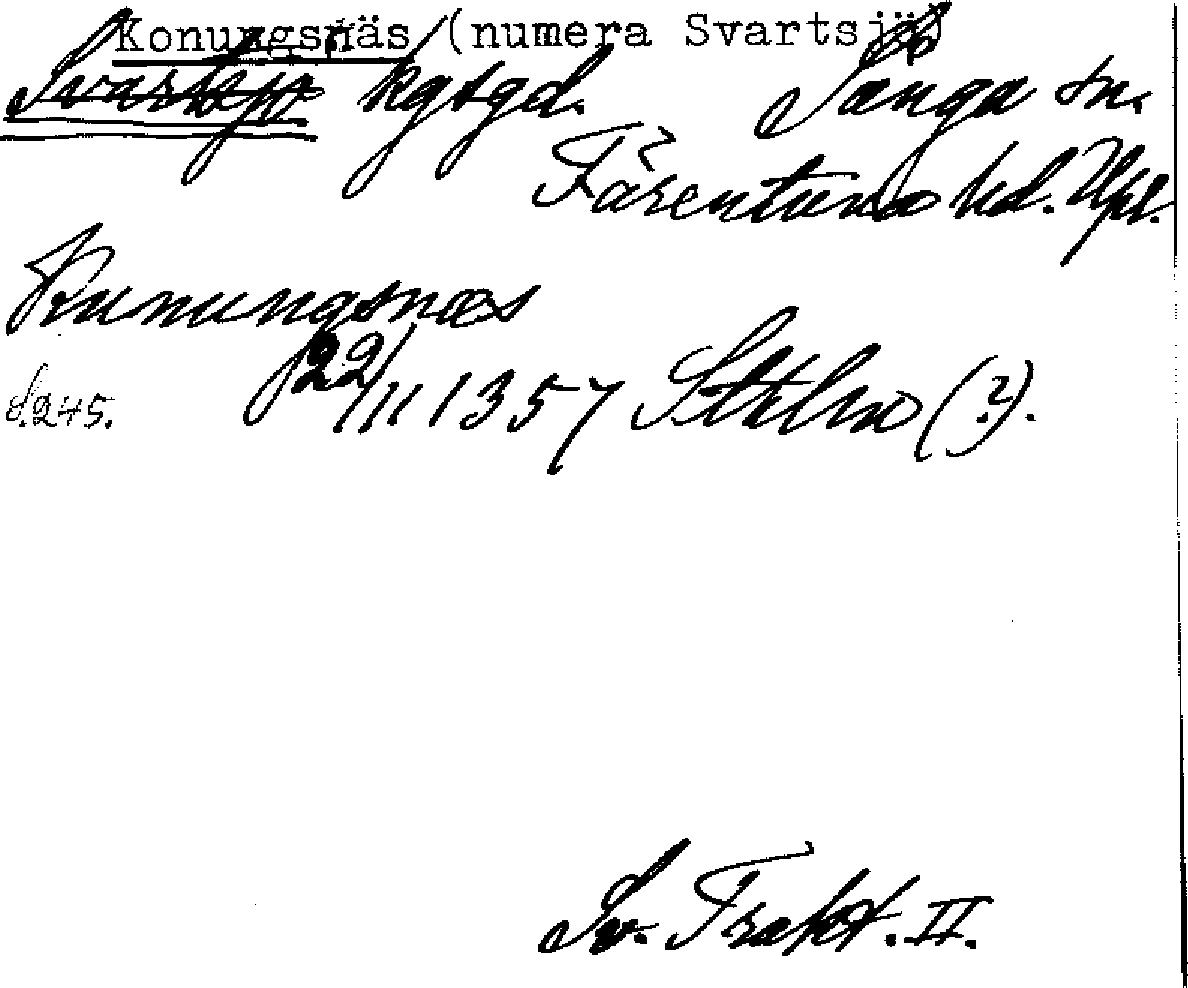 Konungsnäs (numera Svartsjö)
Svartsjö kgsgd. Sånga sn.
Färentuna hd. Upl.
Kunungsnæs
S. 245. 22/11 1357 Sthlm (?).
Sv. Trakt. II.